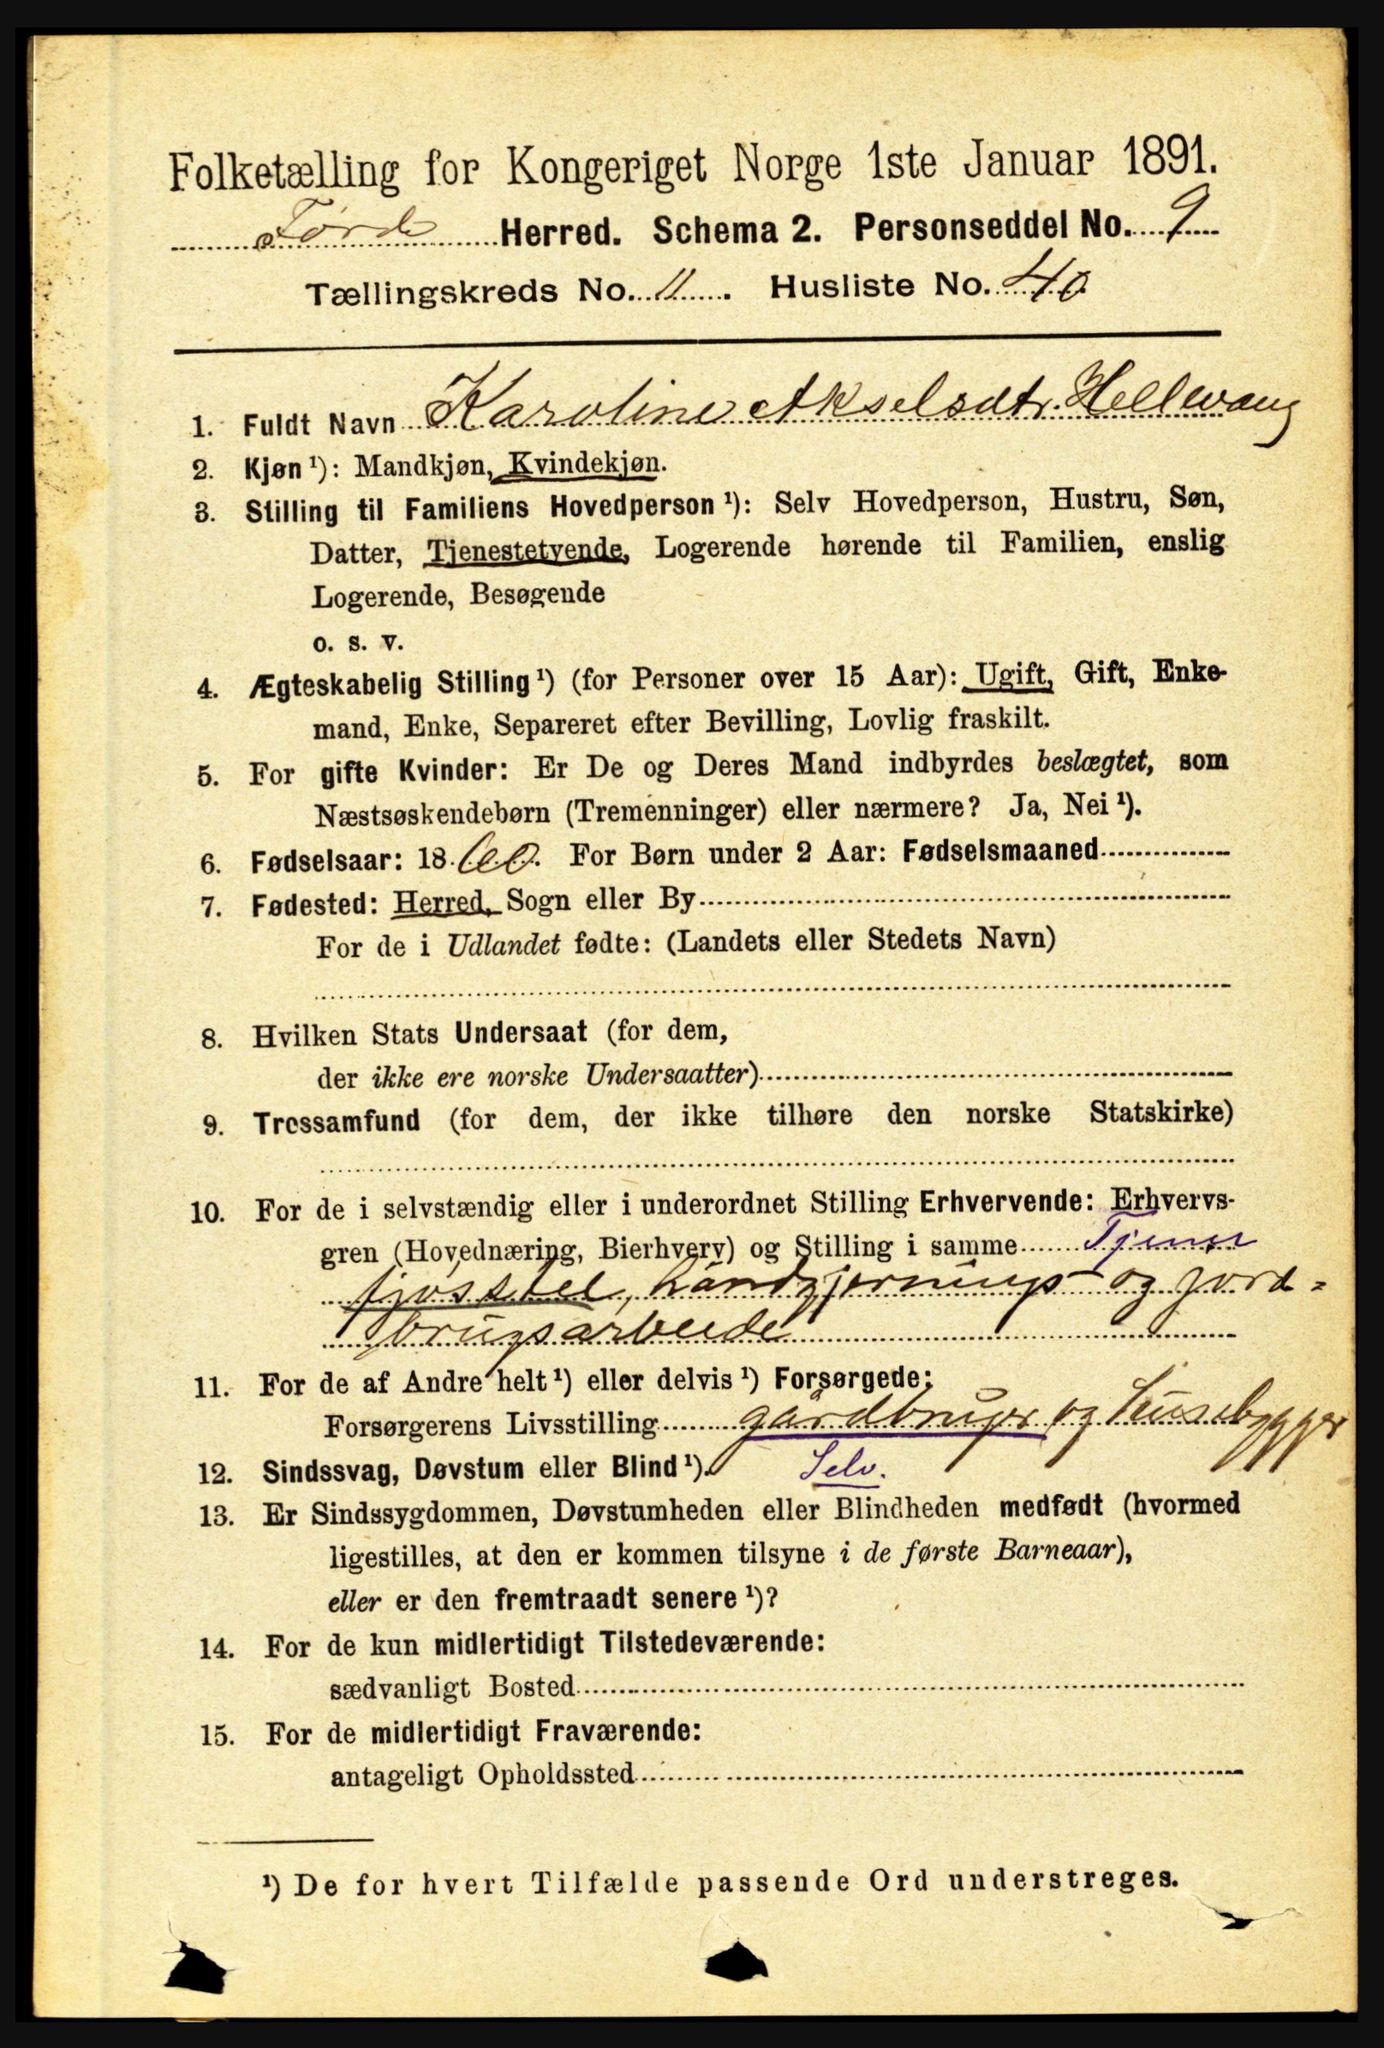 Folketælling for Kongeriget Norge 1ste Januar 1891.
Førde Herred. Schema 2. Personseddel No. 9
Tællingskreds No. 11. Husliste No. 40
1. Fuldt Navn Karoline Akselsdtr. Hellevang
2. Kjøn ¹): Mandkjøn, Kvindekjøn.
3. Stilling til Familiens Hovedperson ¹): Selv Hovedperson, Hustru, Søn,
Datter, Tjenestetyende, Logerende hørende til Familien, enslig
Logerende, Besøgende
o. s. v.
4. Ægteskabelig Stilling ¹) (for Personer over 15 Aar): Ugift, Gift, Enke-
mand, Enke, Separeret efter Bevilling, Lovlig fraskilt.
5. For gifte Kvinder: Er De og Deres Mand indbyrdes beslægtet, som
Næstsøskendebørn (Tremenninger) eller nærmere? Ja, Nei ¹).
6. Fødselsaar: 1860. For Børn under 2 Aar: Fødselsmaaned
7. Fødested: Herred, Sogn eller By
For de i Udlandet fødte: (Landets eller Stedets Navn)
8. Hvilken Stats Undersaat (for dem,
der ikke ere norske Undersaatter)
9. Trossamfund (for dem, der ikke tilhøre den norske Statskirke)
10. For de i selvstændig eller i underordnet Stilling Erhvervende: Erhvervs-
gren (Hovednæring, Bierhverv) og Stilling i samme Tjener
fjosstel, håndgjernings- og jord-
brugsarbeide
11. For de af Andre helt ¹) eller delvis ¹) Forsørgede:
Forsørgerens Livsstilling gårdbruger og husebygger
12. Sindssvag, Døvstum eller Blind ¹). Selv.
13. Er Sindssygdommen, Døvstumheden eller Blindheden medfødt (hvormed
ligestilles, at den er kommen tilsyne i de første Barneaar),
eller er den fremtraadt senere ¹)?
14. For de kun midlertidigt Tilstedeværende:
sædvanligt Bosted
15. For de midlertidigt Fraværende:
antageligt Opholdssted
¹) De for hvert Tilfælde passende Ord understreges.